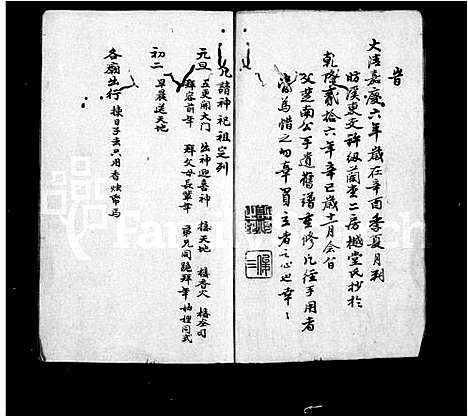 旹
大清嘉慶六年歲在辛酉季夏月刋
時溪東文許級蘭堂二房樾堂氏抄於
乾隆貳拾六年辛巳歲十一月會百
父楚南公手遺舊譜重修凡經手用者
當為惜之勿棄買主者之心也幸〻
凡請神祀祖定列
元旦 五更開大門 出神迎喜神 接天地 接香火 接灶司
拜容前年 拜父母長輩年 弟兄同跪拜年 妯娌同式
初二 早晨送天地
各廟出行 揀日子去只用香燭帋馬
FamilySearch